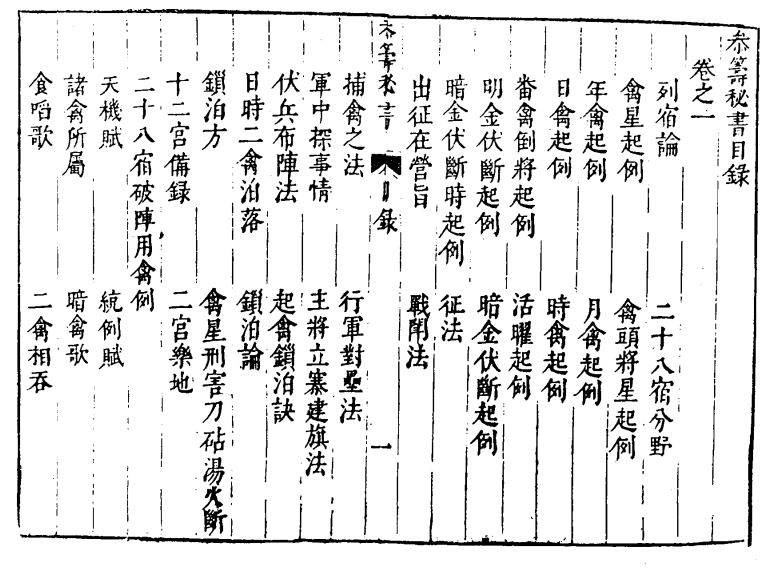 叅籌秘書目錄
卷之一
列宿論　二十八宿分野
禽星起例　禽頭將星起例
年禽起例　月禽起例
日禽起例　時禽起例
畨禽倒將起例　活曜起例
明金伏斷起例　暗金伏斷起例
暗金伏斷時起例　征法
出征在營旨　戰鬭法
叅籌秘書　目錄　一
捕禽之法　行軍對壘法
軍中探事情　主將立寨建旗法
伏兵布陣法　起禽鎖泊訣
日時二禽泊落　鎖泊論
鎖泊方　禽星刑害刀砧湯火斷
十二宮備録　二宮樂地
二十八宿破陣用禽例
天機賦　統例賦
諸禽所屬　暗禽歌
食啗歌　二禽相吞